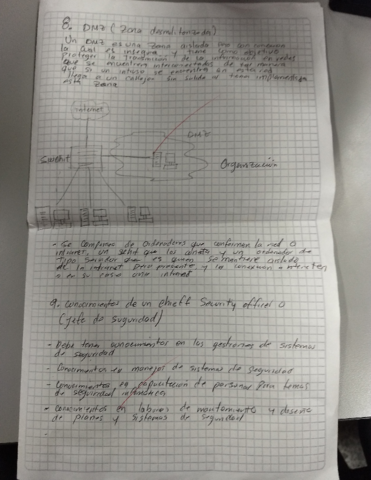 8. DMZ (Zona desmilitarizada)
Un DMZ es una zona aislada
la cual es insegura y tiene como objetivo
proteger la transmision de la informacion en redes
que se encuentren interconectadas de tal manera
que si un intruso se
llega a un callejon sin salida al tener implementada
esta zona
internet
DMZ
Switch
Organización
- Se compone de ordenadores que conforman la red o
intranet, un switch que los un ordenador de
tipo servidor que es quien se mantiene
de la internet para y la conexion a internet
o en su caso una intranet
9. Conocimientos de un chieff Security officer o
(jefe de seguridad)
- Debe tener conocimientos en los gestiones de sistemas
de seguridad
- Conocimientos en manejos de sistemas de seguridad
- Conocimientos en capacitación de personas para temas
de seguridad informatica
- Conocimientos en labores de mantenimiento y diseño
de planes y sistemas de seguridad